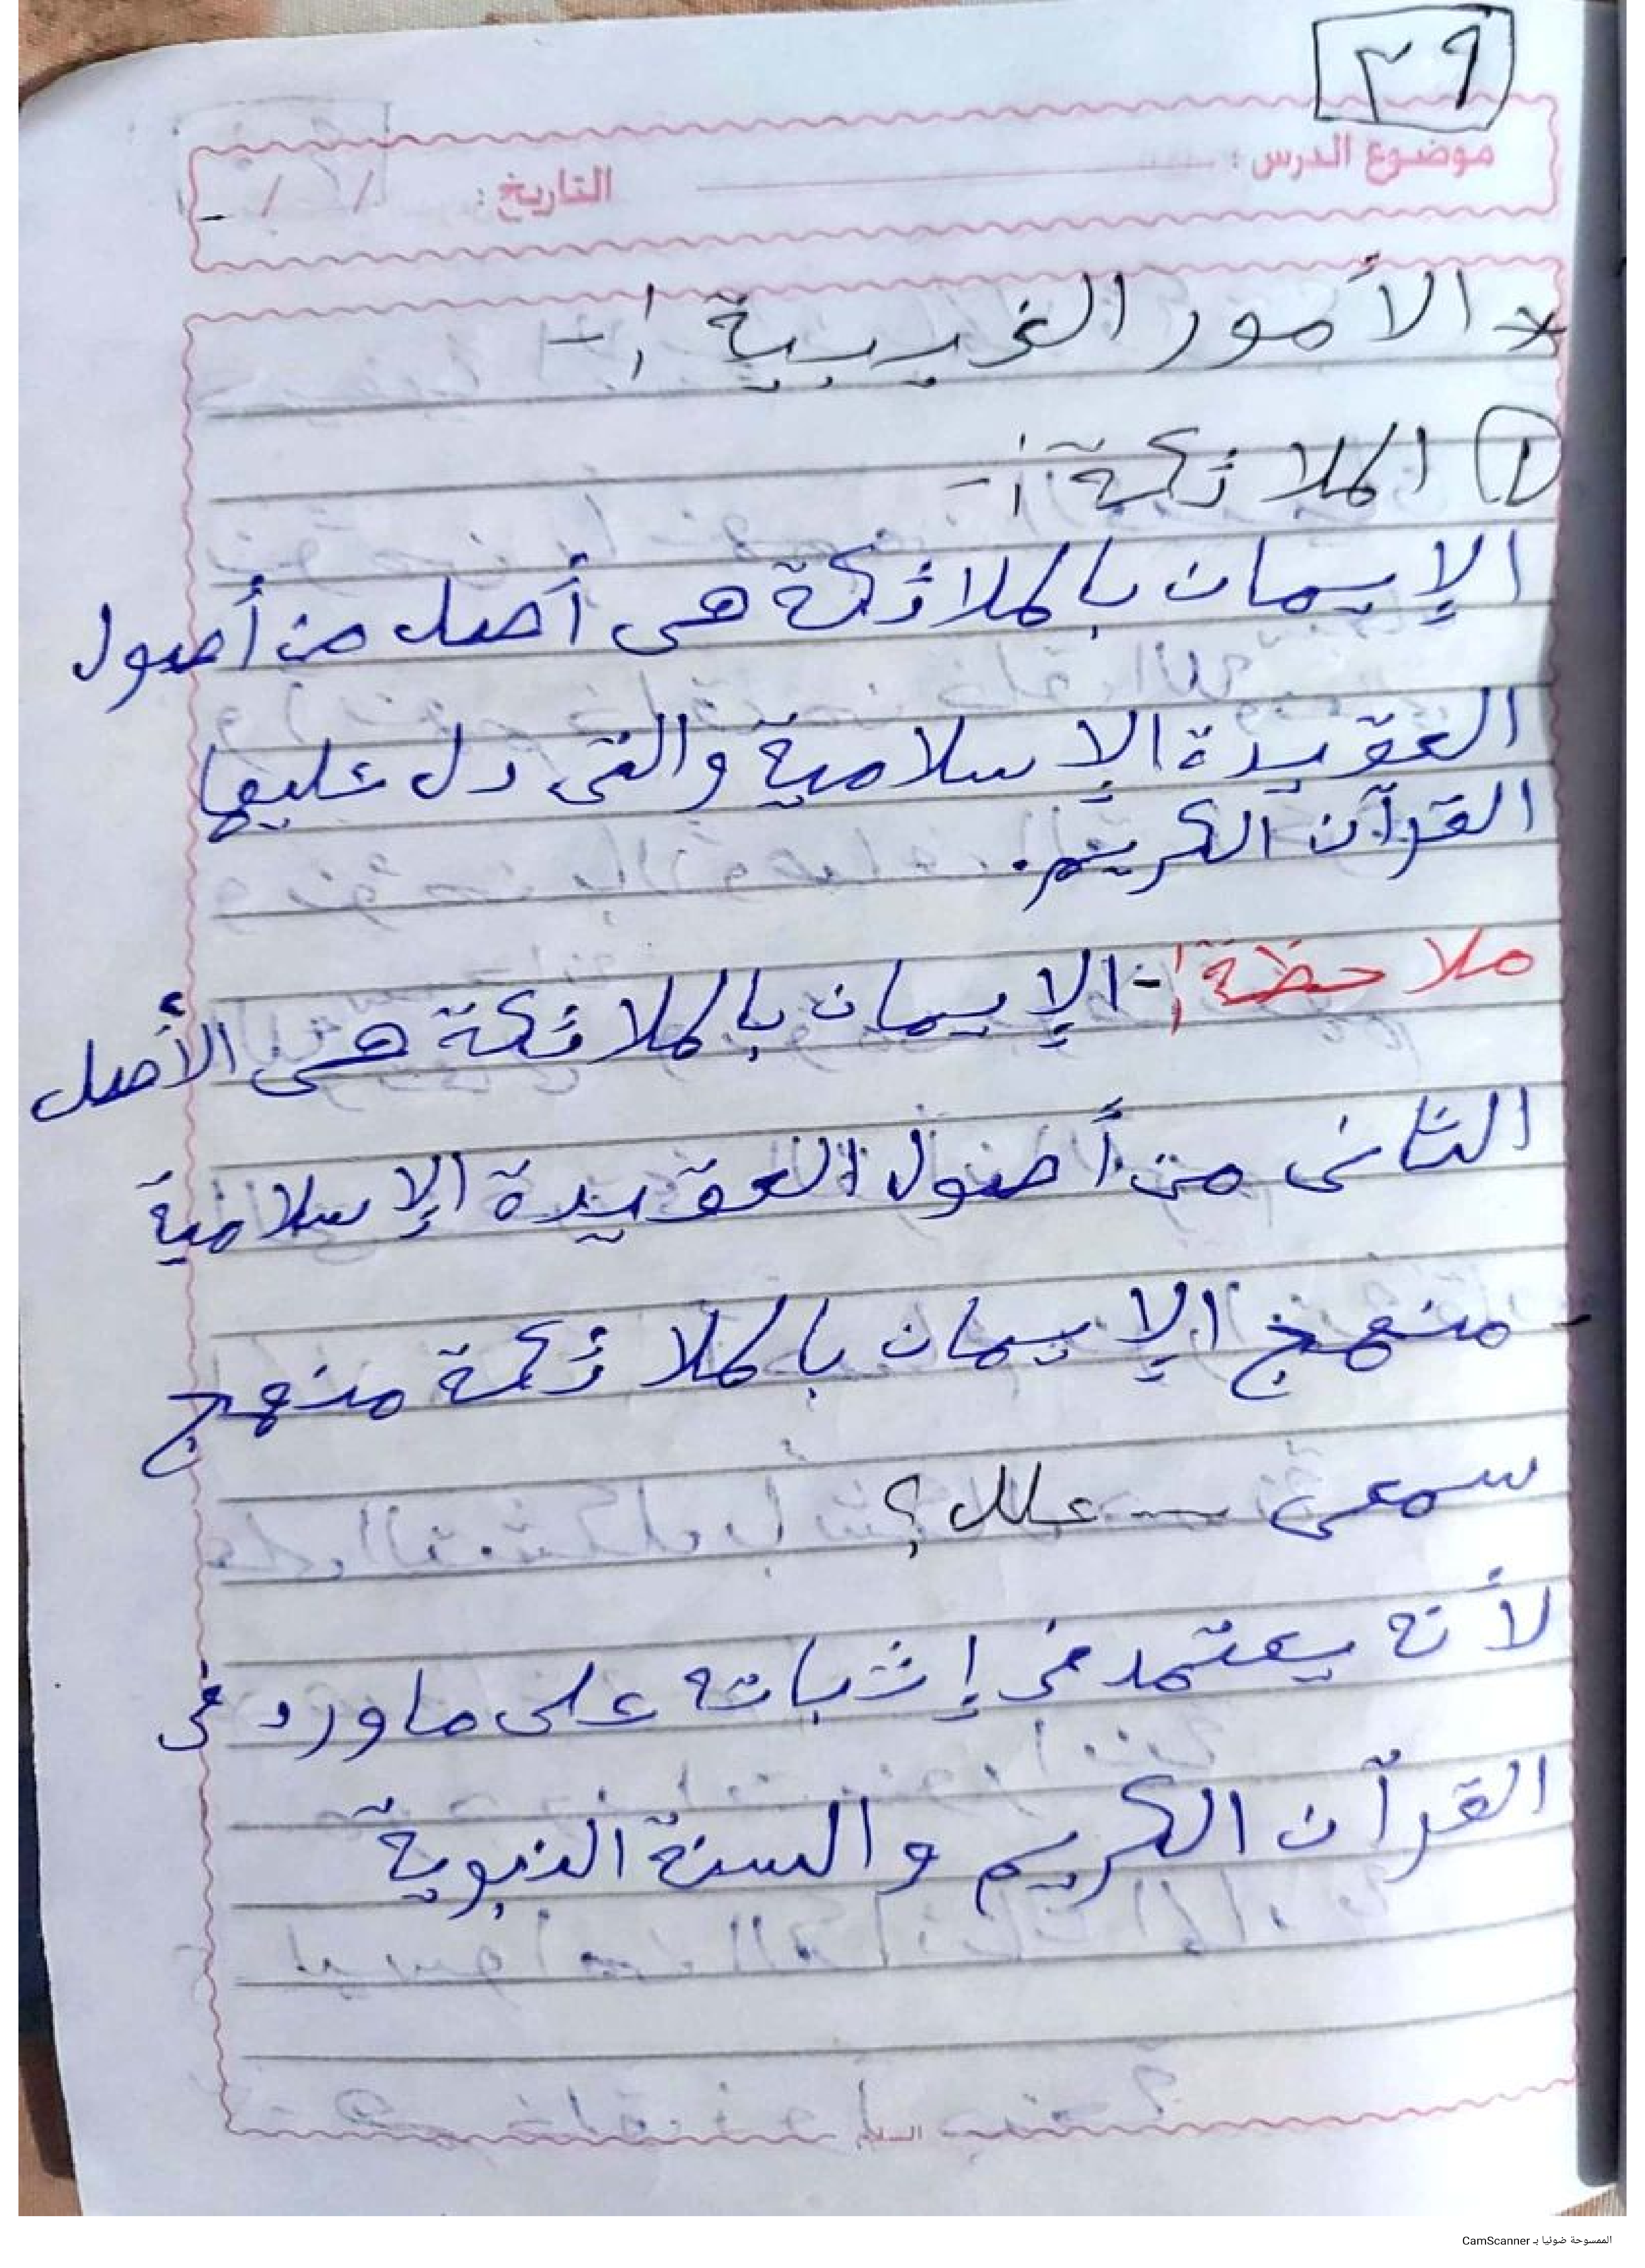 ٢٩
موضوع الدرس : التاريخ : / /
* الأمور الغيبية :-
١ الملائكة :-
الإيمان بالملائكة هى أصل من أصول
العقيدة الإسلامية والتى دل عليها
القرآن الكريم.
ملاحظة :- الإيمان بالملائكة هى الأصل
الثانى من أصول العقيدة الإسلامية
- منهج الإيمان بالملائكة منهج
سمعى — علل؟
لأنه يعتمد فى إثباته على ماورد فى
القرآن الكريم والسنة النبوية
الممسوحة ضوئيا بـ CamScanner